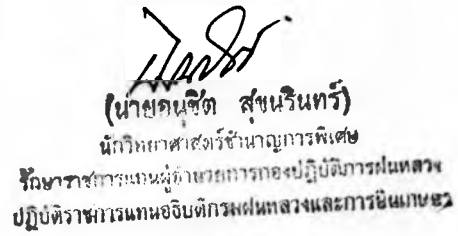 (นายคนุชิต สุขนรินทร์)
นักวิทยาศาสตร์ชำนาญการพิเศษ
รักษาราชการแทนผู้อำนวยการกองปฏิบัติการฝนหลวง
ปฏิบัติราชการแทนอธิบดีกรมฝนหลวงและการบินเกษตร